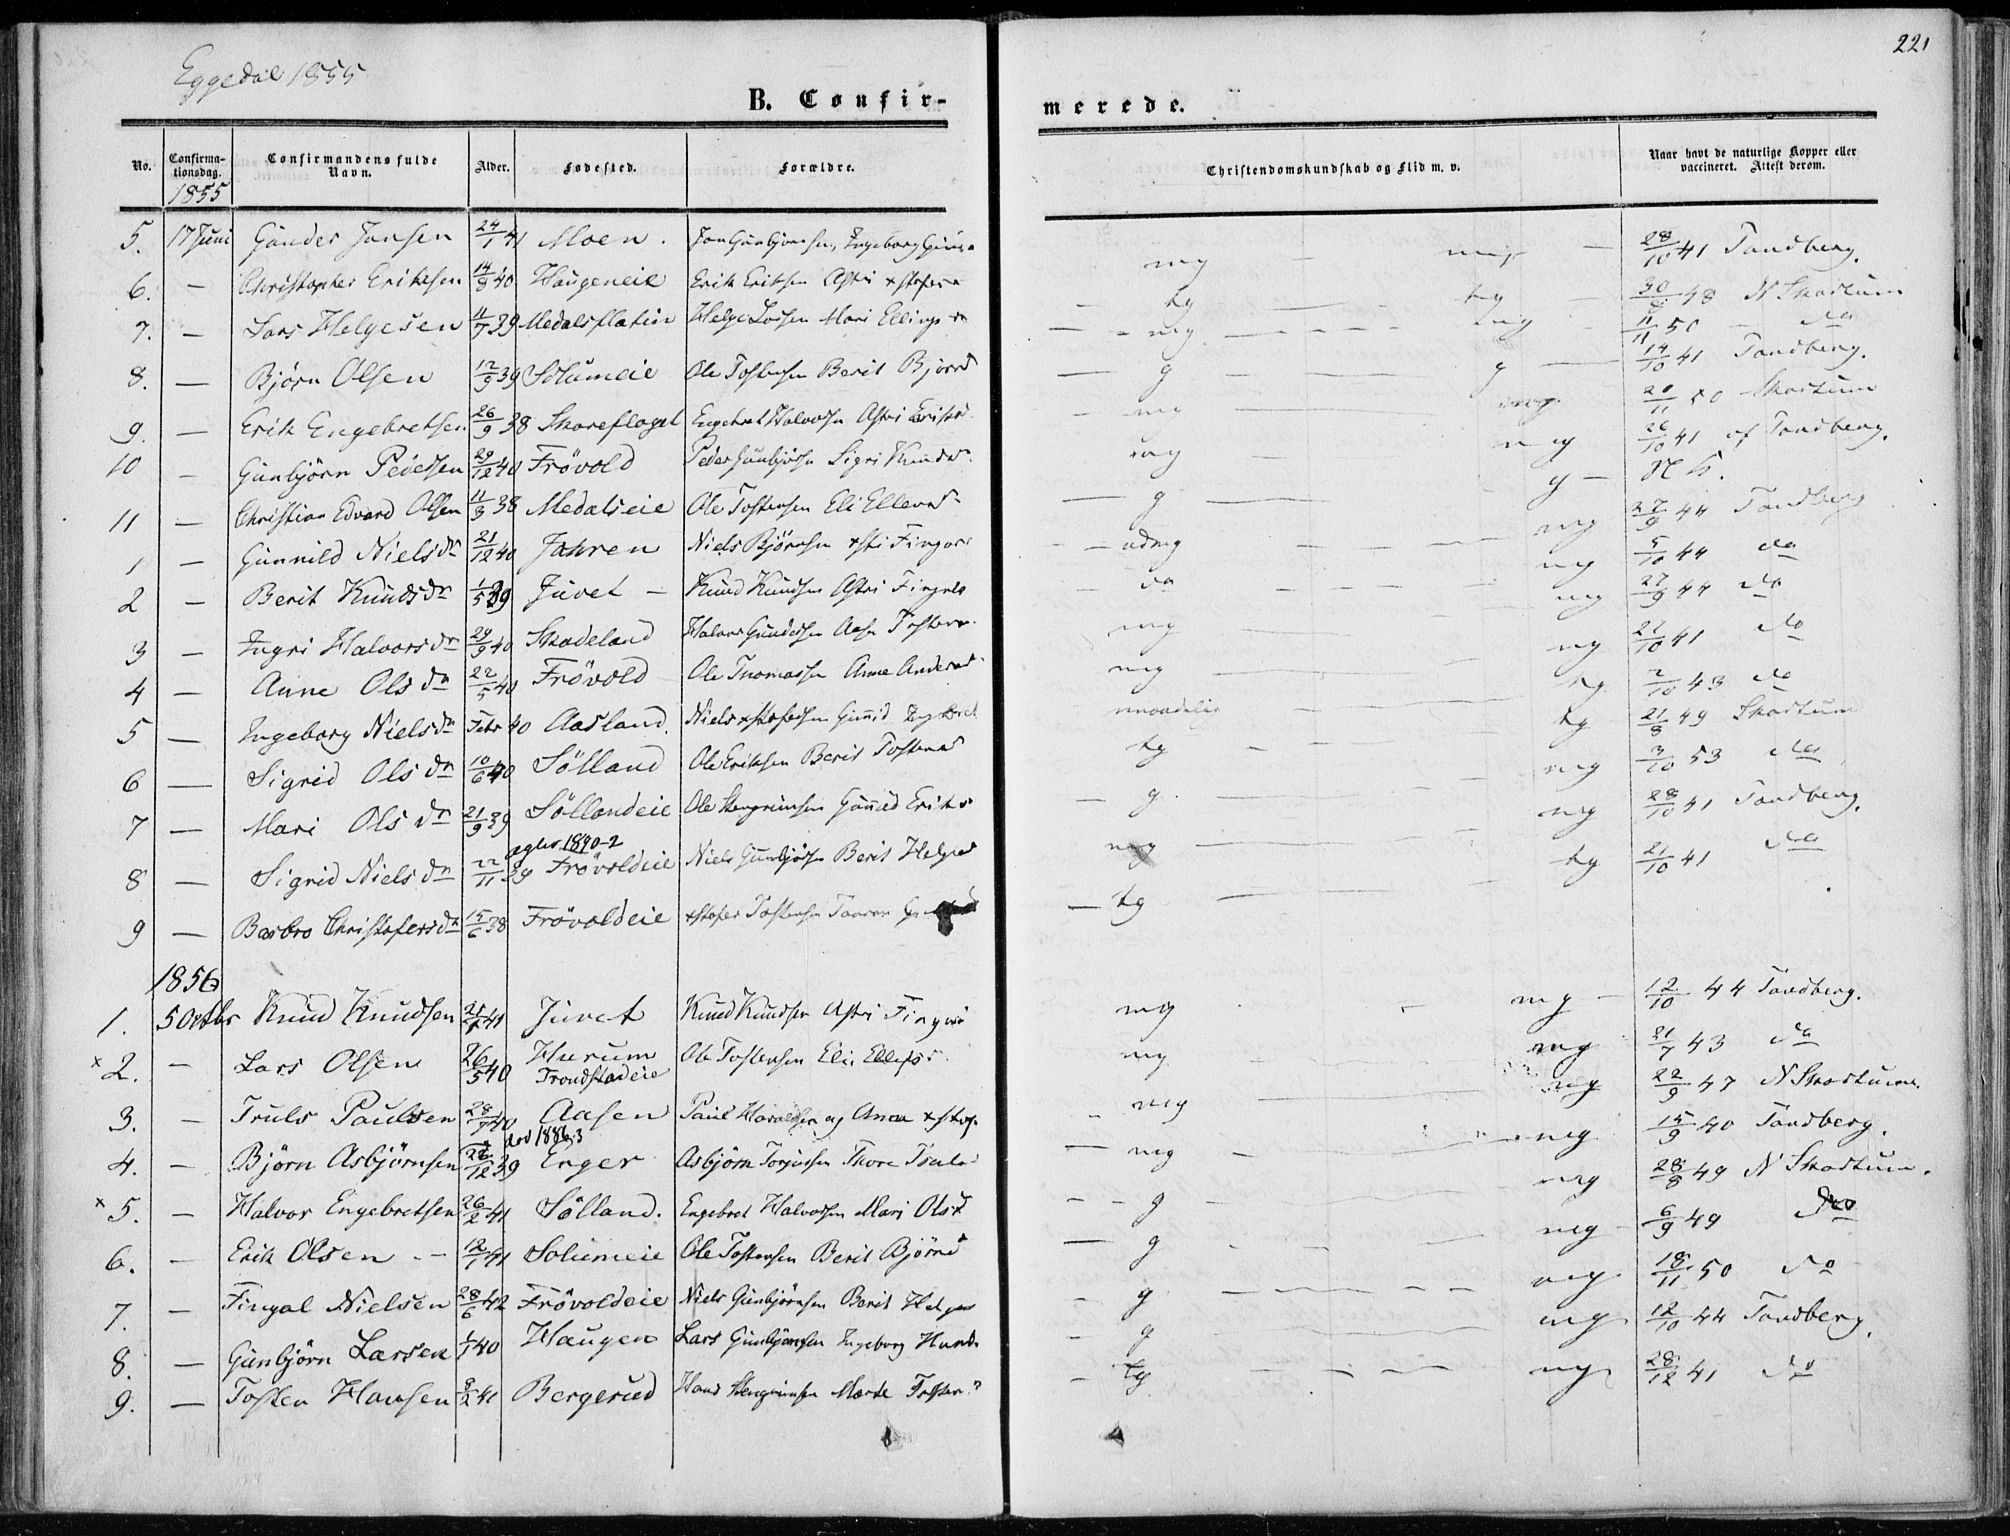 Eggedal 1855
221
B. Confir-
merede.
No. Confirma-tionsdag. Confirmandens fulde Navn. Alder. Fødested. Forældre. Christendomskundskab og Flid m. v. Naar havt de naturlige Kopper eller vaccineret. Attest derom.
1855
5. 17 Juni Gunder Jonsen 24/1 41 Moen. Jon Gunbjørnsen, Ingeborg mg mg 28/10 41 Tandberg.
6. — Christopher Eriksen 14/8 40 Haugeneie Erik Eriksen Astri tg tg 30/8 48 N Skartum
7. — Lars Helgesen 11/7 39 Medalsflatin Helge Larsen Mari Ellings mg mg 11/11 50 do
8. — Bjørn Olsen 12/9 39 Solumeie Ole Tostensen Berit Bjørnsd g g 14/10 41 Tandberg.
9. — Erik Engebretsen 26/9 38 Skareflaget Engebret Halvorsen Astri Eriksd mg mg 20/11 50 Skartum
10 — Gunbjørn Pedersen 29/12 40 Frövold Peder Gunbjørnsen Sigri Knudsd mg mg 26/10 41 af Tandberg.
11 — Christian Edvard Olsen 11/3 38 Medalseie Ole Tostensen Eli Ellevsd g g N S.
1 — Gunnild Nielsdr 21/12 40 Jahren Niels Bjørnsen udmg mg 27/9 44 Tandberg
2 — Berit Knudsdr 1/5 39 Juvet — Knud Knudsen Astri Fingalsd do mg 5/10 44 do
3 — Ingri Halvorsdr 29/9 40 Skadeland Halvor Gundersen Aase Tostensd mg mg 27/9 44 do
4 — Anne Olsdr 22/5 40 Frövold Ole Thomassen Anne Andersd mg mg 21/10 41 do
5 — Ingeborg Nielsdr Febr 40 Aasland. Niels xstofersen Gunnild Engebretsd maadelig tg 2/10 43 do
6 — Sigrid Olsdr 10/6 40 Sölland Ole Eriksen Berit Tostensd tg tg 21/8 49 Skartum
7 — Mari Olsdr 21/9 39 Söllandeie Ole Stengrimsen Gunnild Eriksd g mg 3/10 53 do
8 — Sigrid Nielsdr 22/11 39 Frövoldeie Niels Gunbjørnsen Berit Helgesd mg mg 28/10 41 Tandberg.
1890-2
9 — Barbro Christofersdr 15/6 38 Frövoldeie xstofer Tostensen tg tg 21/10 41 do
1856
1. 5 Octbr Knud Knudsen 41 Juvet Knud Knudsen Astri Fingalsd mg mg 12/10 44 Tandberg.
x 2. — Lars Olsen 26/5 40 Hurum Trondstadeie Ole Tostensen Eli Ellefsd mg mg 21/7 43 do
3. — Truls Paulsen 28/7 40 Aasen Paul Haraldsen og Anna xstofs mg mg 22/9 47 N Skartum.
4. — Bjørn Asbjørnsen 12 39 Enger Asbjørn Torjusen Thore Truls mg mg 15/9 40 Tandberg.
død 1886.3
x 5. — Halvor Engebretsen 26/2 41 Sölland. Engebret Halvorsen Mari Olsd g mg 28/8 49 N Skartum.
6. — Erik Olsen 12/7 41 Solumeie Ole Tostensen Berit Bjørnsd g mg 6/9 49 do
7. — Fingal Nielsen 28/6 42 Frövoldeie Niels Gunbjørnsen Berit Helges g mg 18/11 50 do
8. — Gunbjörn Larsen 1/1 40 Haugen Lars Gunbjørnsen Ingeborg g mg 12/10 44 Tandberg.
9. — Tosten Hansen 8/2 41 Bergerud Hans Stengrimsen Marte Tosten tg mg 28/12 41 do